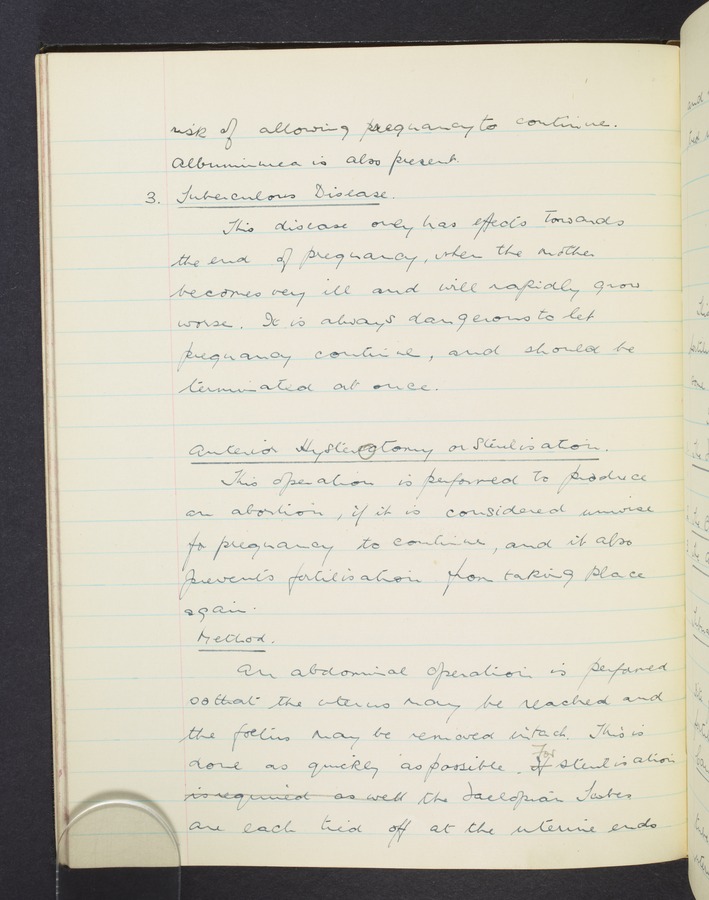 risk of allowing pregnancy to continue.
Albuminurea is also present.
3. Tuberculous Disease.
This disease only has effects towards
the end of pregnancy, when the mother
becomes very ill and will rapidly grow
worse. It is always dangerous to let
pregnancy continue, and should be
terminated at once.
Anterior Hysterotomy or Sterilisation.
This operation is performed to produce
an abortion, if it is considered unwise
for pregnancy to continue, and it also
prevents fertilisation from taking place
again.
Method.
An abdominal operation is performed
so that the uterus may be reached and
the foetus may be removed intact. This is
done as quickly as possible. If For sterilisation
is required as well the Faellopian Tubes
are each tied off at the uterine ends